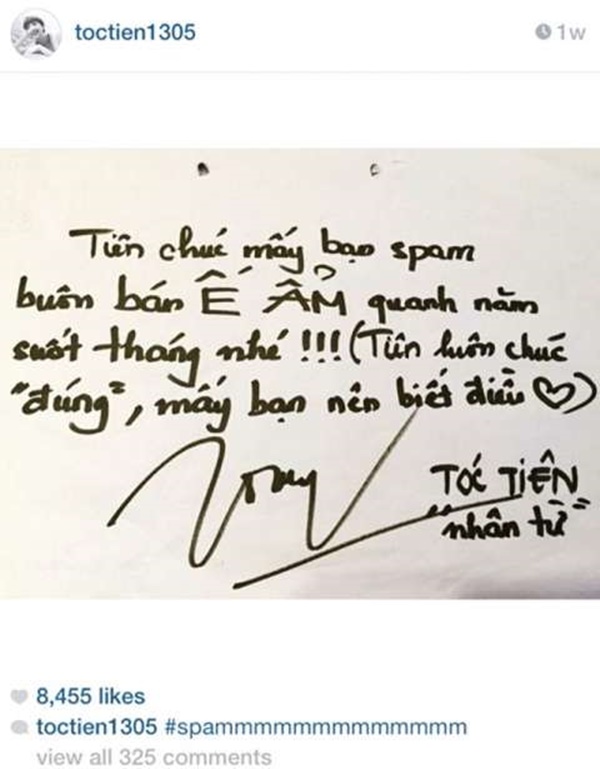 toctien1305
1w
Tiên chúc mấy bạn spam
buôn bán Ế ẨM quanh năm
suốt tháng nhé !!! (Tiên luôn chúc
"đúng", mấy bạn nên biết điều ♡)
TÓC TIÊN
"nhân từ"
8,455 likes
toctien1305 #spammmmmmmmmmmmmm
view all 325 comments